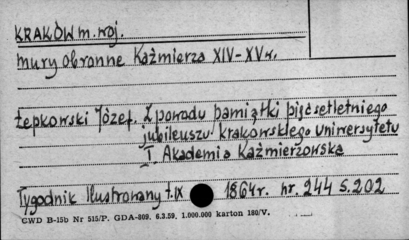 KRAKÓW m. woj.
mury obronne Kaźmierza XIV-XV w.
Łepkowski Józef. Z powodu pamiątki pięćsetletniego
jubileuszu krakowskiego uniwersytetu
I Akademia Kaźmierzowska
Tygodnik Ilustrowany t. IX 1864 r. nr. 244 s. 202
CWD B-15b Nr 515/P. GDA-809. 6.3.59. 1.000.000 karton 180/V.